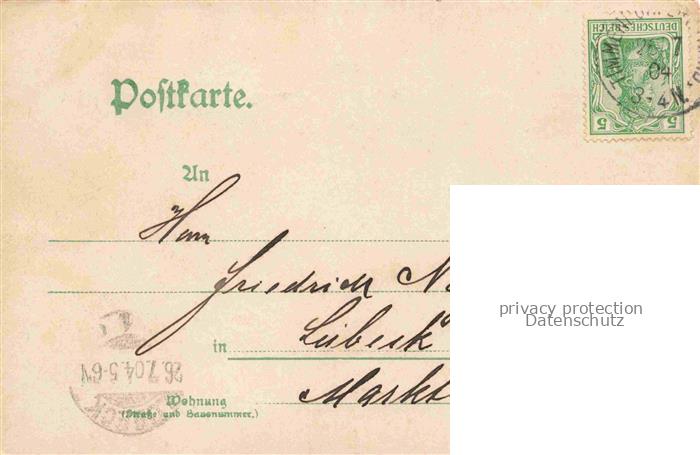 DEUTSCHES REICH
5 5
7
04
3-4N.
Postkarte.
An
Herrn
Friedrich N
in Lübeck
Markt
Wohnung
(Straße und Hausnummer.)
26.7.04.5-6N
privacy protection
Datenschutz